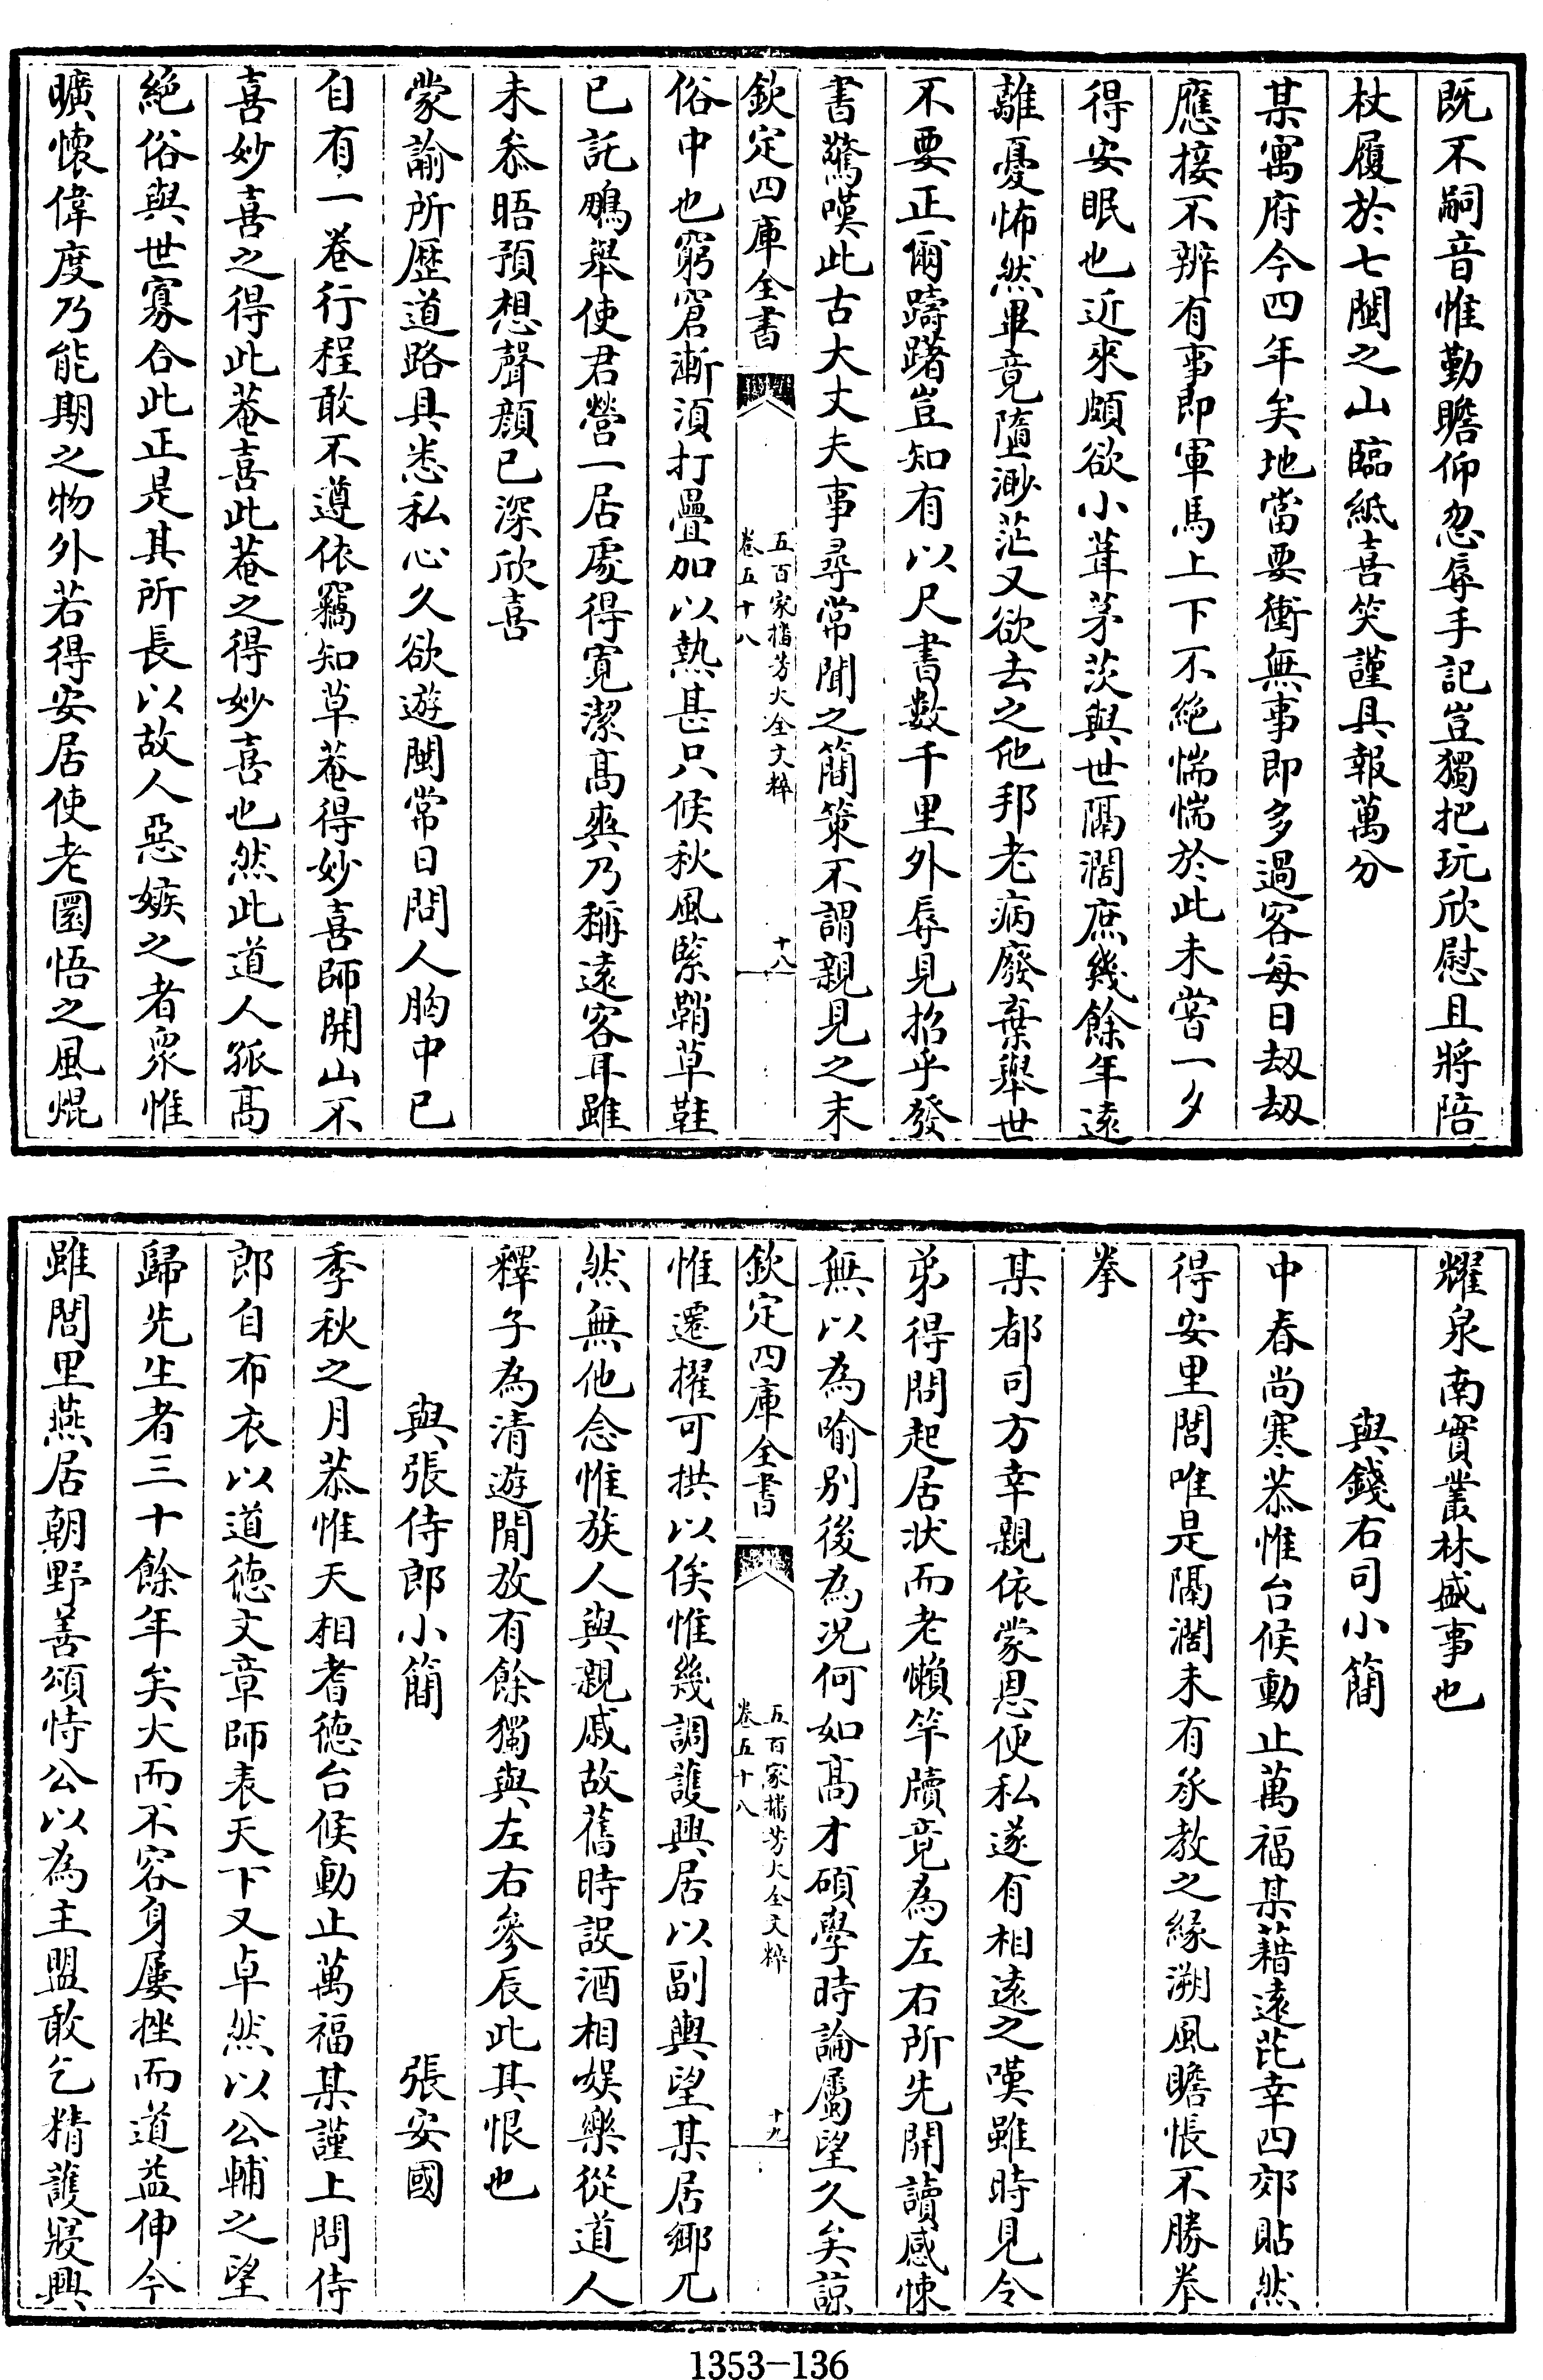 既不嗣音惟勤瞻仰忽辱手記豈獨把玩欣慰且將陪
杖履於七閩之山臨紙喜笑謹具報萬分
某寓府今四年矣地當要衝無事即多過客每日刼刼
應接不辦有事即軍馬上下不絶惴惴於此未嘗一夕
得安眠也近來頗欲小葺茅茨與世隔濶庶幾餘年遠
離憂怖然畢竟墮渺茫又欲去之他邦老病廢棄舉世
不要正爾躊躇豈知有以尺書數千里外辱見招乎發
書驚嘆此古大丈夫事尋常聞之簡策不謂親見之末
欽定四庫全書
五百家播芳大全文粹
卷五十八
十八
俗中也窮窘漸須打疊加以熱甚只候秋風緊鞘草鞋
已託鵬舉使君營一居處得寛潔髙爽乃稱遠客耳雖
未叅晤預想聲顔已深欣喜
蒙諭所歴道路具悉私心久欲遊閩常日問人胸中已
自有一卷行程敢不遵依竊知草菴得妙喜師開山不
喜妙喜之得此菴喜此菴之得妙喜也然此道人孤髙
絶俗與世寡合此正是其所長以故人惡嫉之者衆惟
曠懐偉度乃能期之物外若得安居使老圜悟之風焜
耀泉南實叢林盛事也
與錢右司小簡
中春尚寒恭惟台候動止萬福某藉遠芘幸四郊貼然
得安里閭唯是隔濶未有承教之緣溯風瞻悵不勝拳
拳
某都司方幸親依蒙恩便私遂有相遠之嘆雖時見令
弟得問起居状而老懶竿牘竟為左右所先開讀感悚
無以為喻别後為况何如髙才碩學時論屬望久矣諒
欽定四庫全書
五百家播芳大全文粹
卷五十八
十九
惟遷擢可拱以俟惟幾調護興居以副輿望某居鄉兀
然無他念惟族人與親戚故舊時設酒相娱樂從道人
釋子為清遊閒放有餘獨與左右參辰此其恨也
與張侍郎小簡　張安國
季秋之月恭惟天相耆徳台候動止萬福某謹上問侍
郎自布衣以道徳文章師表天下又卓然以公輔之望
歸先生者三十餘年矣大而不容身屢挫而道益伸今
雖閭里燕居朝野善頌恃公以為主盟敢乞精護寢興
1353-136